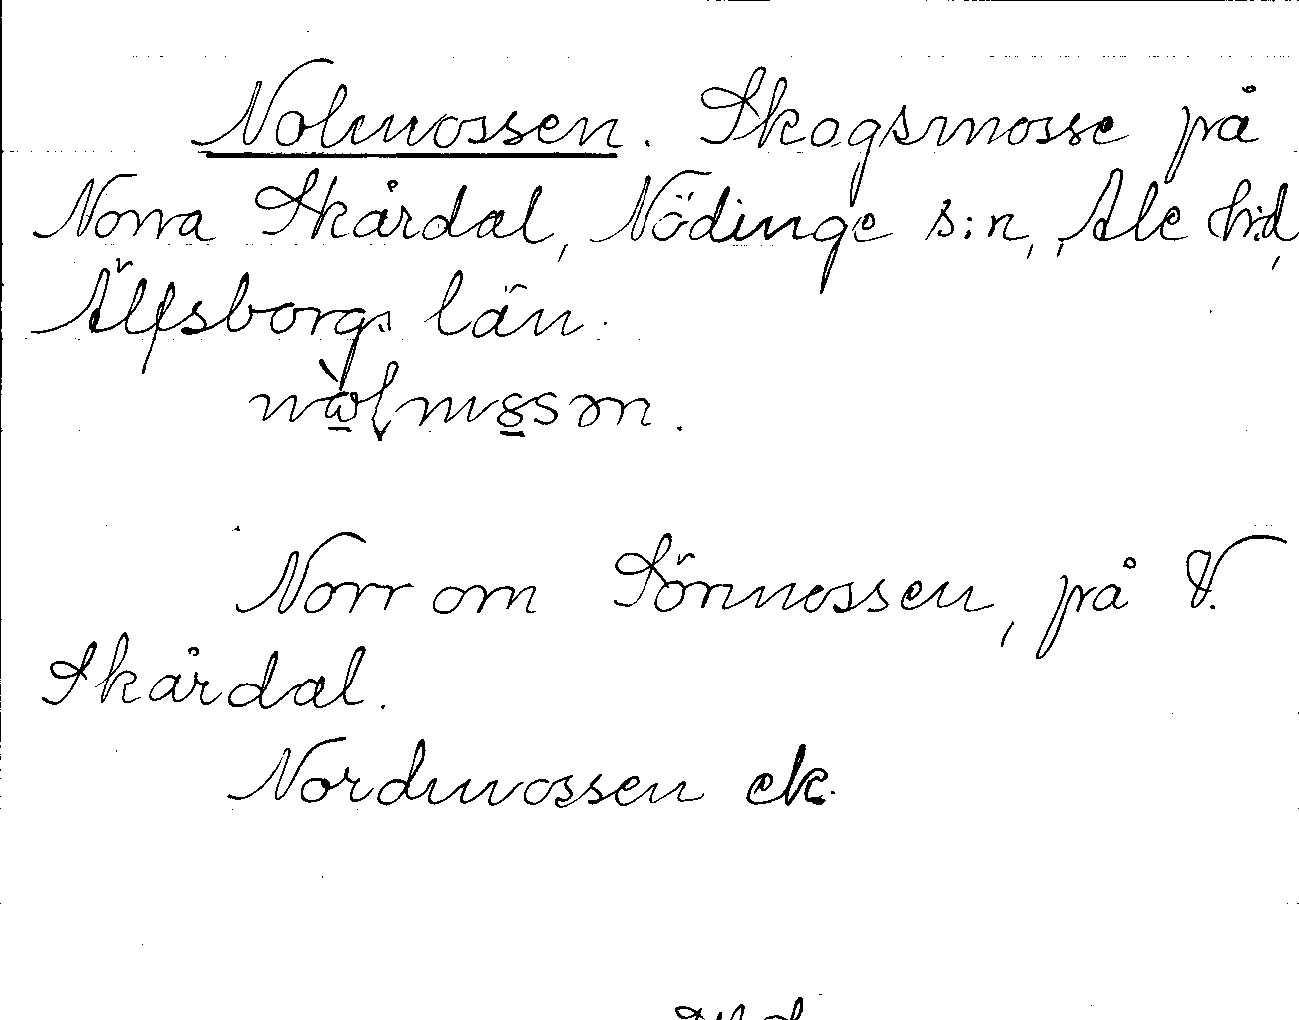 Nolmossen. Skogsmosse på
Norra Skårdal, Nödinge s:n, Ale h:d,
Älfsborgs län.
Norr om Sörmossen, på V.
Skårdal.
Nordmossen ek.